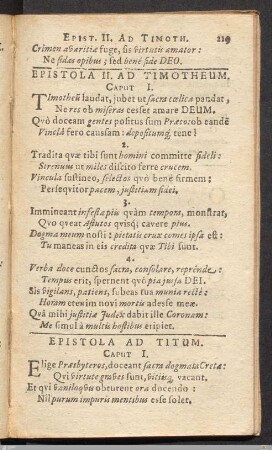 EPIST. II. AD TIMOTH. 219
Crimen avaritiæ fuge, sis virtutis amator:
Ne fidas opibus; sed benè fide DEO.
EPISTOLA II. AD TIMOTHEUM.
CAPUT I.
TImotheũ laudat, jubet ut sacra cœlica pandat,
Ne res ob miseras cesset amare DEUM.
Quò doceam gentes positus sum Præco: ob eandẽ
Vinclá fero caussam: depositumq́; tene!
2.
Tradita quæ tibi sunt homini committe fideli:
Strenuus ut miles discito ferre crucem.
Vincula sustineo, selectos quò benè firmem:
Persequitor pacem, justitiam fidei.
3.
Immineant infesta piis quàm tempora, monstrat,
Quo queat astutos quisq́; cavere pius.
Dogma meum nosti: pietatis crux comes ipsa est:
Tu maneas in eis credita quæ Tibi sunt.
4.
Verba doce cunctos sacra, consolare, reprẽnde:
Tempus erit, spernent quò pia jussa DEI.
Sis vigilans, patiens, subeas tua munia rectè:
Horam etenim novi mortis adesse meæ.
Quâ mihi justitiæ Judex dabit ille Coronam:
Me simul à multis hostibus eripiet.
EPISTOLA AD TITUM.
CAPUT I.
ELige Presbyteros, doceant sacra dogmata Cretæ:
Qui virtute graves sunt, vitiisq́; vacent.
Et qui vaniloquis obturent ora docendo:
Nil purum impuris mentibus esse solet.